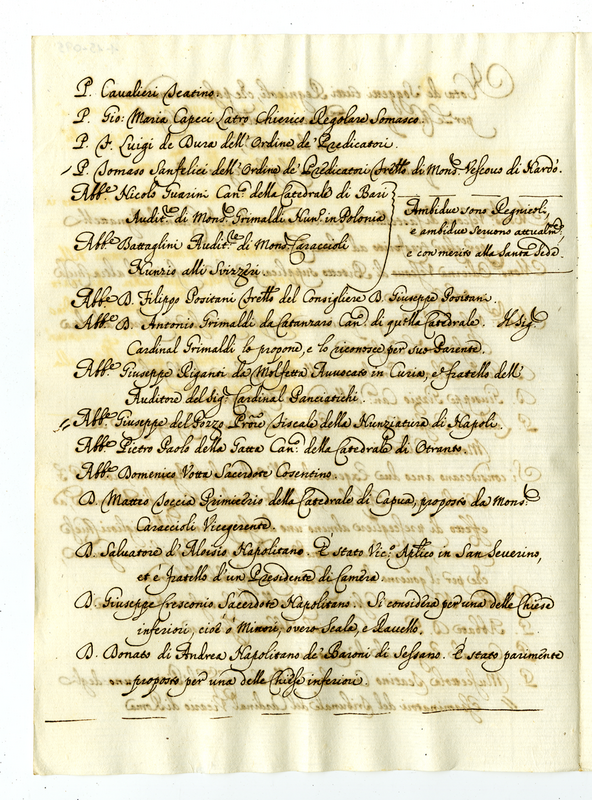 P. Cavalieri Teatino.
P. Gio: Maria Capeci Latro Chierico Regolare Somasco.
P. F. Luigi de Dura dell'Ordine de' Predicatori.
P. Tomaso Sanfelici dell'Ordine de' Predicatori fratello di Mons.r Vescovo di Nardò.
Abb.e Nicolò Guarini Can.co della Catedrale di Bari
Audit.e di Mons.r Grimaldi Nun.o in Polonia
Abb.e Battaglini Audit.e di Mons.r Caraccioli
Nunzio alli Svizzeri
Ambidue sono Regnicoli,
e ambidue servono attualm.te
e con merito alla Santa Sede.
Abb.e D. Filippo Positani fratello del Consigliere D. Giuseppe Positani.
Abb.e D. Antonio Grimaldi da Catanzaro Can.co di quella Catedrale. Il Sig.r
Cardinal Grimaldi lo propone, e lo riconosce per suo Parente.
Abb.e Giuseppe Giganti da Molfetta Avvocato in Curia, e fratello dell'
Auditore del Sig.r Cardinal Panciatichi.
Abb.e Giuseppe del Pozzo Pro.re Fiscale della Nunziatura di Napoli.
Abb.e Pietro Paolo della Gatta Can.co della Catedrale di Otranto.
Abb.e Domenico Votta Sacerdote Cosentino.
D. Matteo Joccia Primicerio della Catedrale di Capua, proposto da Mons.r
Caraccioli Vicegerente.
D. Salvatore d'Aloisio Napolitano. È stato Vic.o Ap.lico in San Severino,
et è fratello d'un Presidente di Camera.
D. Giuseppe Cresconio Sacerdote Napolitano. Si considera per una delle Chiese
inferiori, cioè ò Minori, overo Scala, e Ravello.
D. Donato di Andrea Napolitano de' Baroni di Sessano. È stato parimente
proposto per una delle Chiese inferiori.